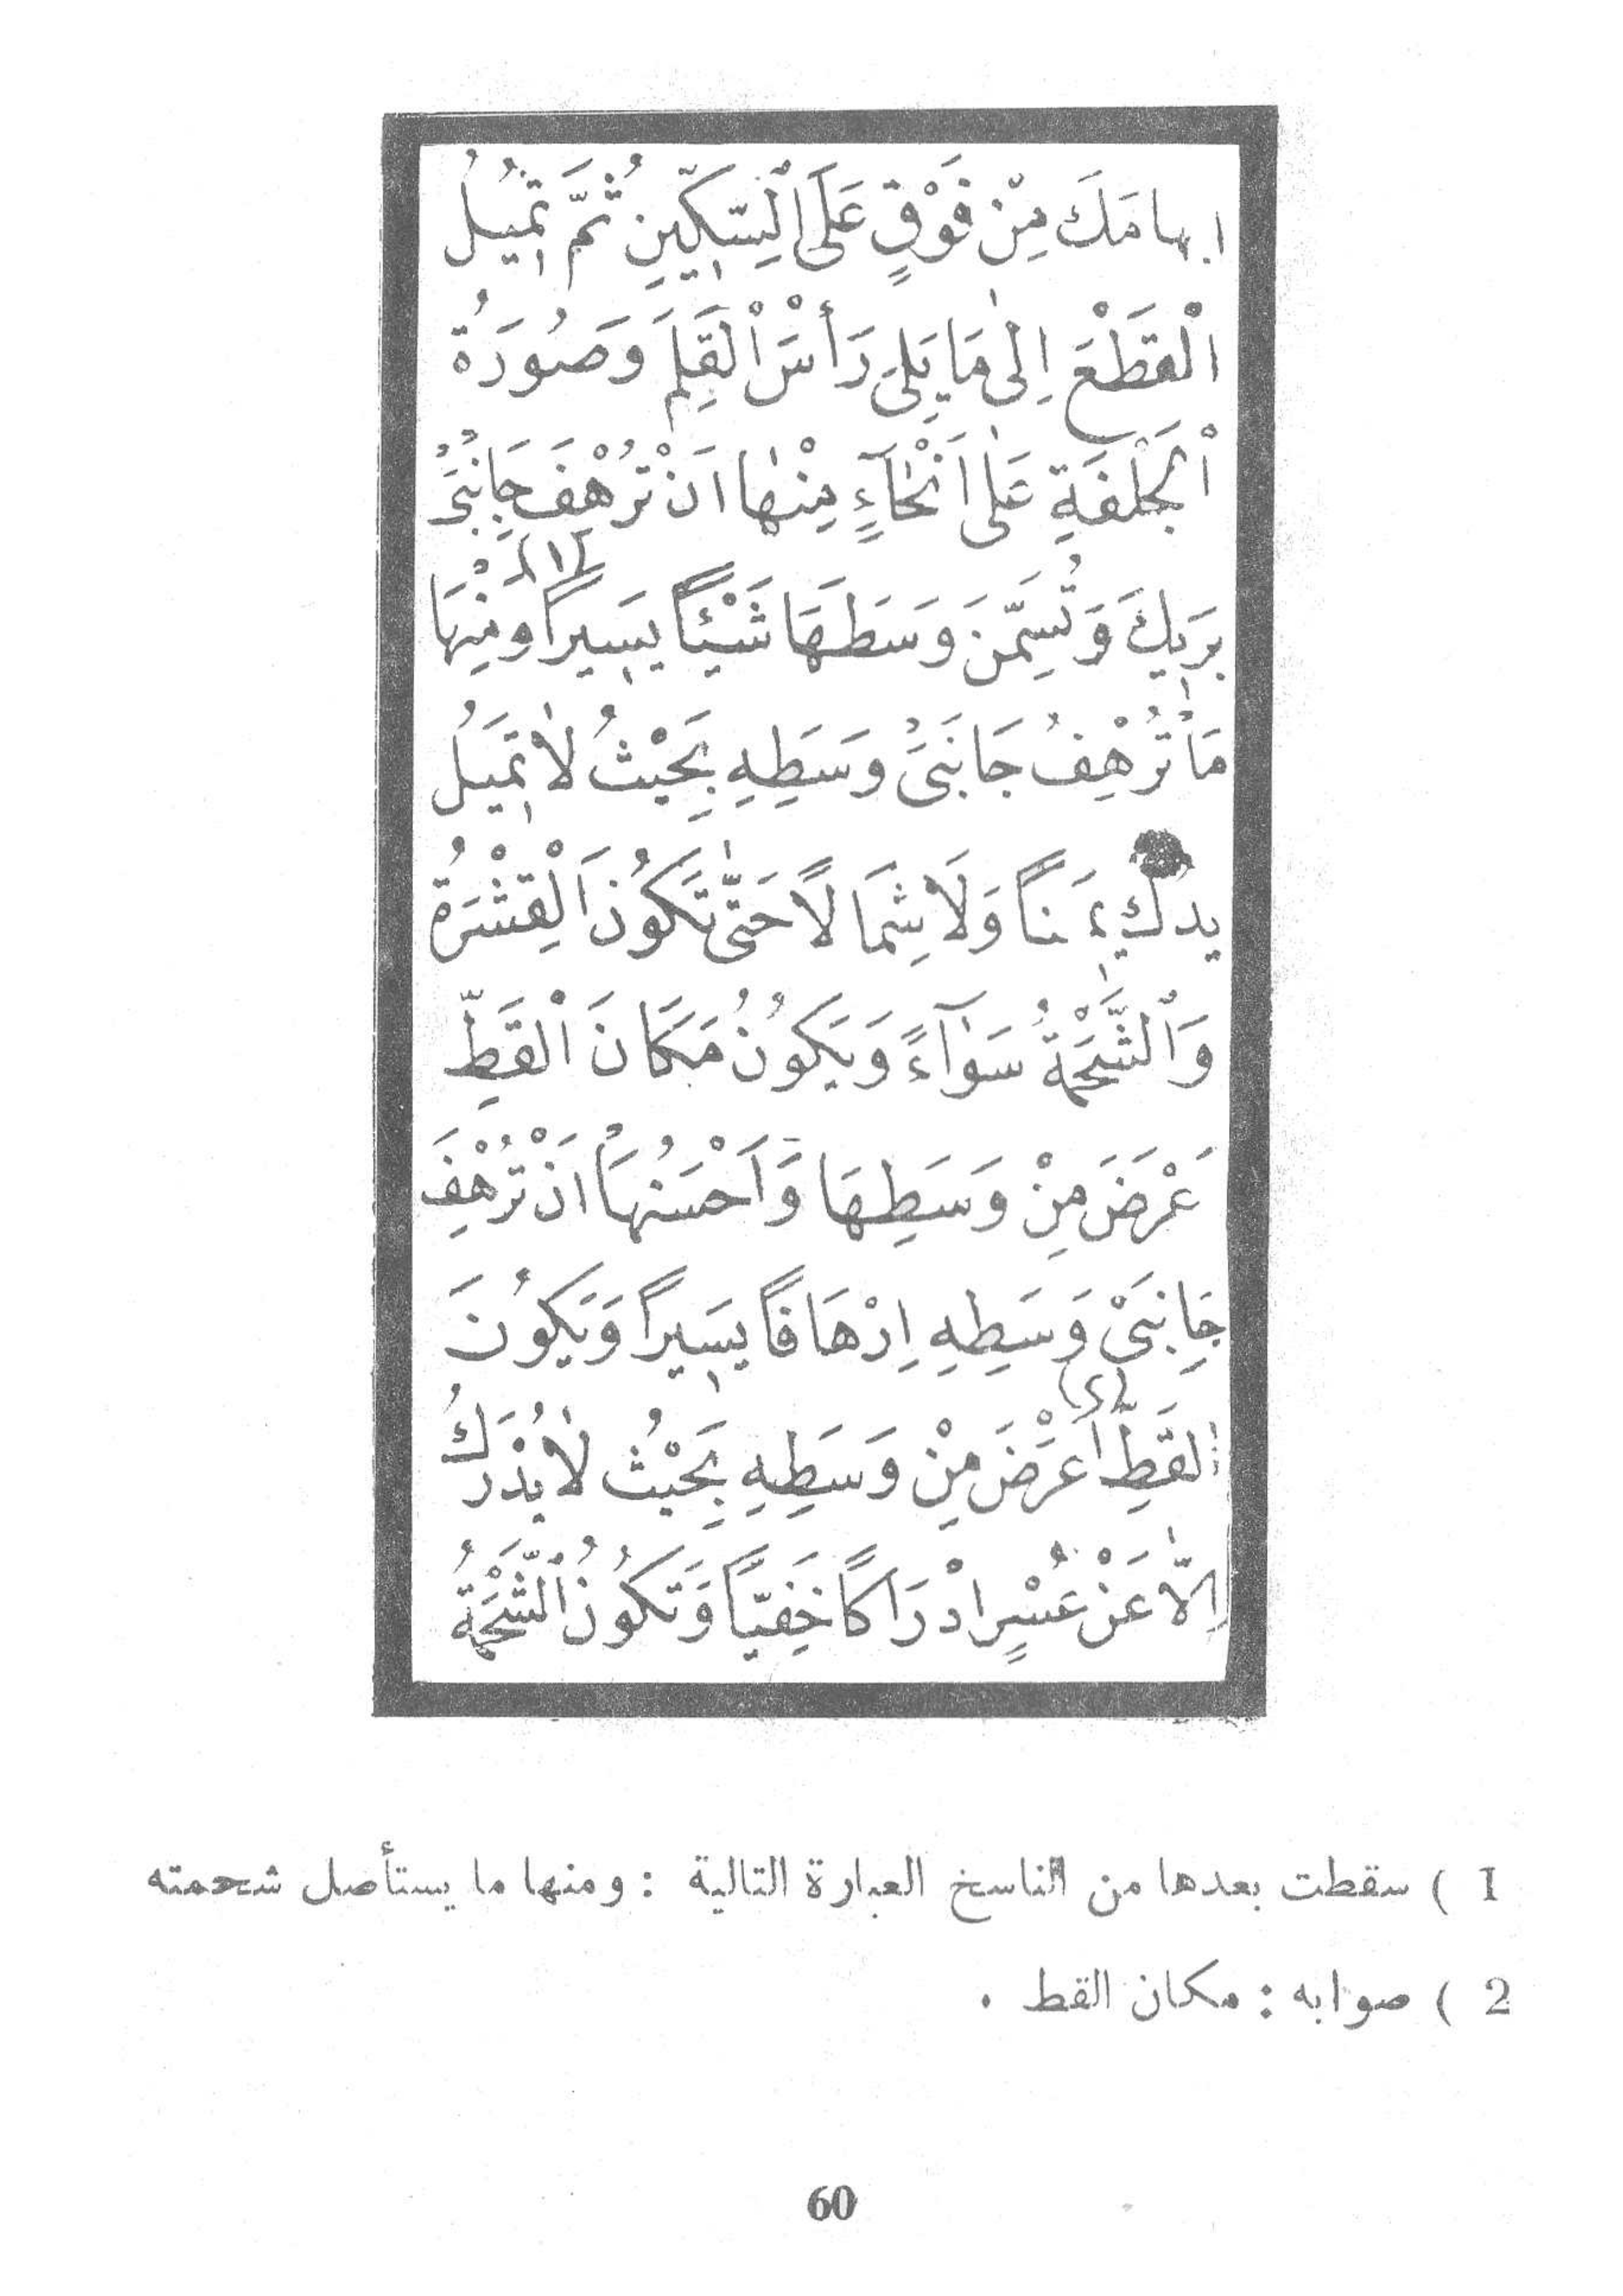 ابهامَكَ مِنْ فَوْقٍ عَلَى الْسِّكِّينِ ثُمَّ تَمِيلُ
الْقَطْعَ اِلىٰ مَا يَلِى رَأْسَ الْقَلَمِ وَصُورَةُ
الْجَلْفَةِ عَلىٰ اَنْحَآءٍ مِنْهٰا اَنْ تُرْهِفَ جَانِبَىْ
بَرَيِكَ وَتُسَمِّنَ وَسَطَهَا شَيْئاً يَسِيراً (١) وَمِنْهَا
مَا تُرْهِفُ جَانَبَىْ وَسَطِهِ بِحَيْثُ لاٰ تَمِيَلُ
يدكَ يَمِيناً وَلَا شِمَالاً حَتّٰى تَكُونَ الْقِشْرَةُ
وَالْشَّحْمَةُ سَوٰآءً وَيَكُونُ مَكَانَ الْقَطِّ
عَرْضَ مِنْ وَسَطِهَا وَاَحْسَنُهَا اَنْ تُرْهِفَ
جَانِبَىْ وَسَطِهِ اِرْهَافاً يَسِيراً وَيَكُونَ
القَطِّ (٢) اَعْرَضَ مِنْ وَسَطِهِ بِحَيْثُ لاٰ يُدْرَكُ
اِلاّٰ عَنْ عُسْرٍ ادْرَاكاً خَفِيّاً وَتَكُونُ الْشَّحْمَةُ
1 ) سقطت بعدها من الناسخ العبارة التالية : ومنها ما يستأصل شحمته
2 ) صوابه : مكان القط .
60